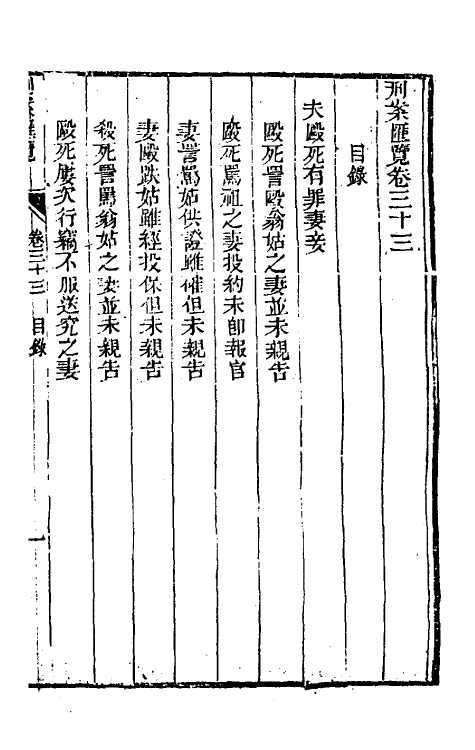 刑案匯覽卷三十三
目錄
夫毆死有罪妻妾
毆死詈毆翁姑之妻並未親告
毆死罵祖之妻投約未卽報官
妻詈罵姑供證雖確但未親告
妻毆跌姑雖經投保但未親告
殺死詈罵翁姑之妻並未親告
毆死屢次行竊不服送究之妻
刑案匯覽 卷三十三 目錄 一